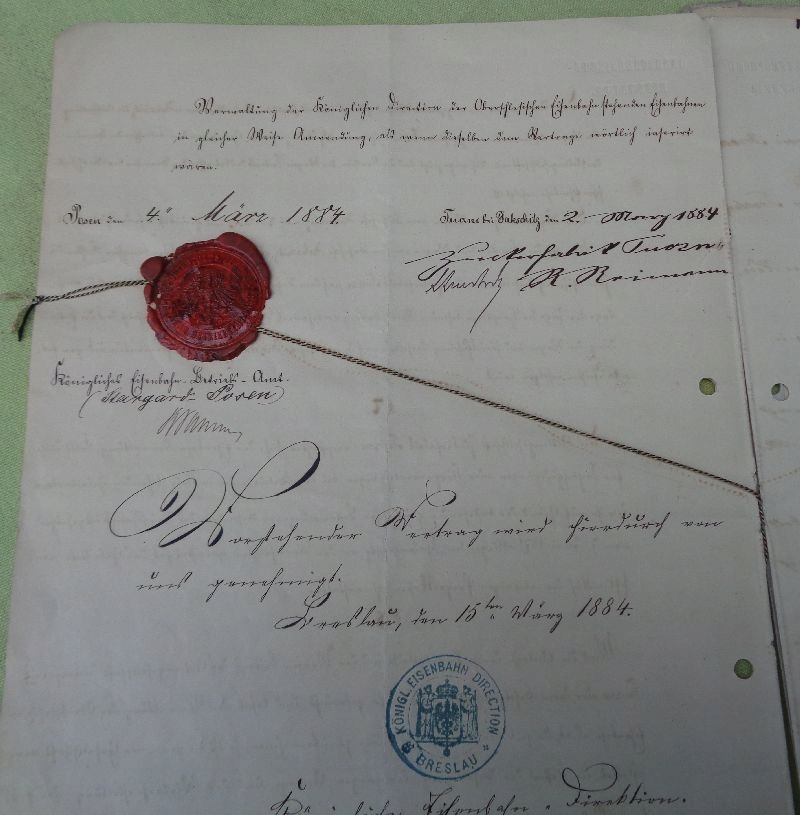 Verwaltung der Königlichen Direction der Oberschlesischen Eisenbahn stehenden Eisenbahnen
in gleicher Weise Anwendung, als wenn dieselben dem Vertrage wörtlich inserirt
wären.
Posen den 4. März 1884.
bei den 2. März 1884
Zuckerfabrik Tuczno
R. Reimann
Königliches Eisenbahn-Betriebs-Amt.
(Stargard Posen)
Vorstehender Vertrag wird hierdurch von
uns genehmigt.
Breslau, den 15ten März 1884.
KÖNIGL. EISENBAHN DIRECTION
BRESLAU
Königliche Eisenbahn-Direktion.